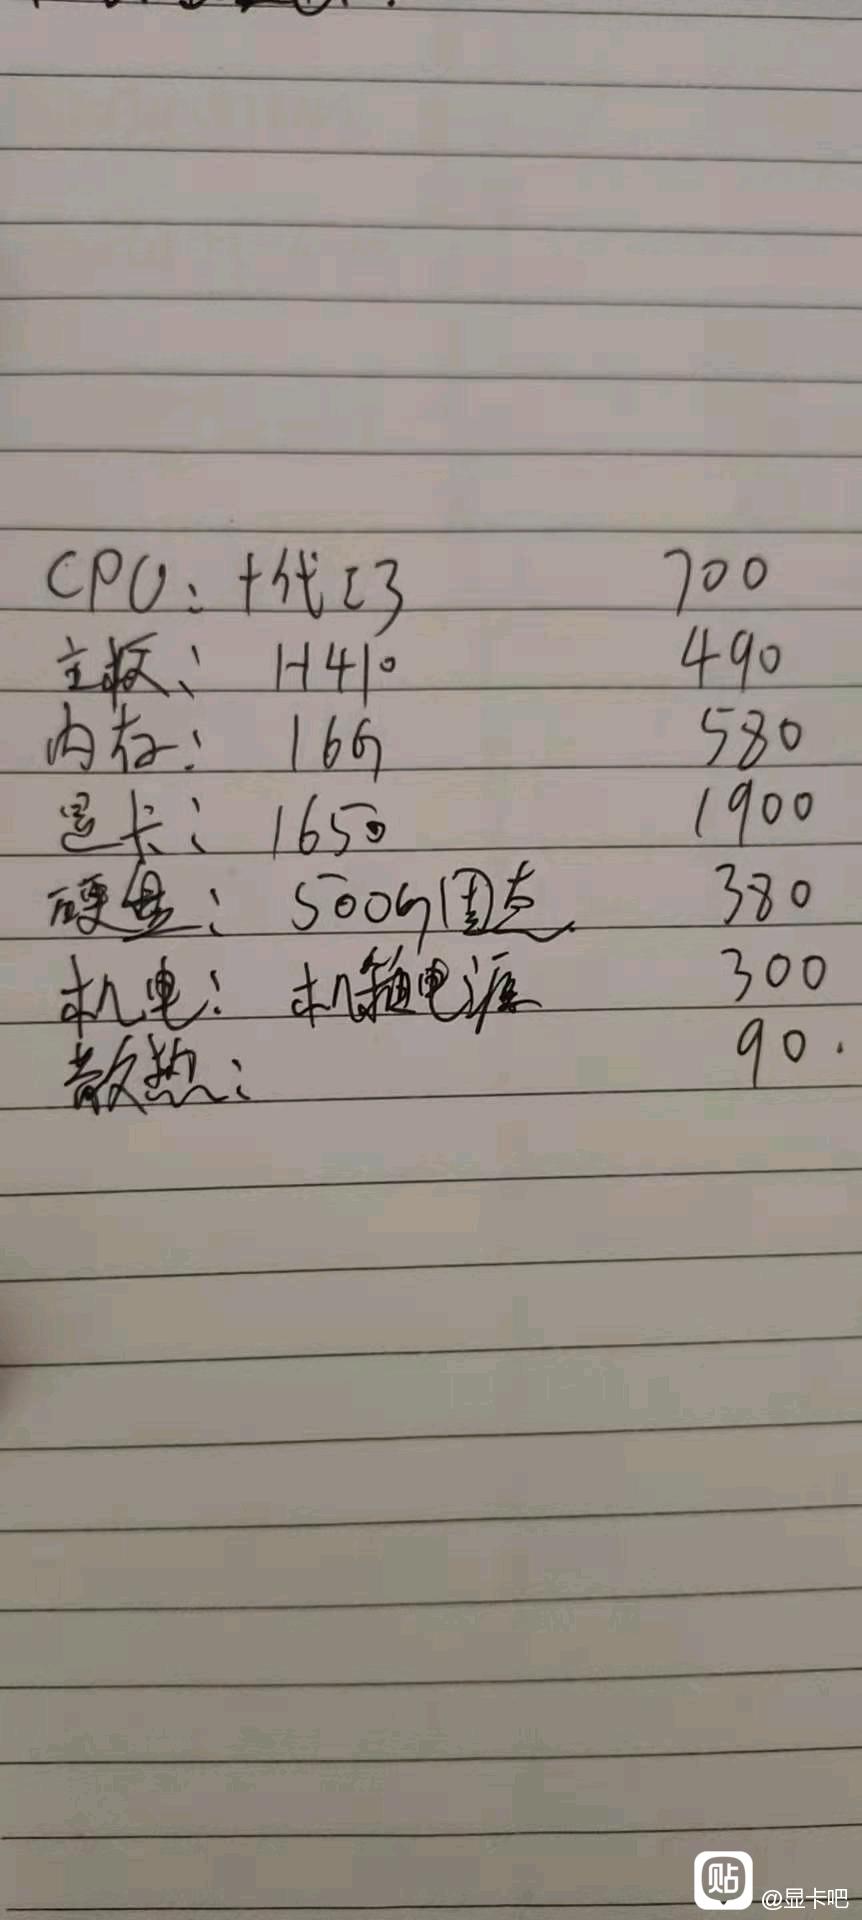 CPU: 十代i3 700
主板: H410 490
内存: 16G 580
显卡: 1650 1900
硬盘: 500G固态 380
机电: 机箱电源 300
散热: 90.
贴 @显卡吧